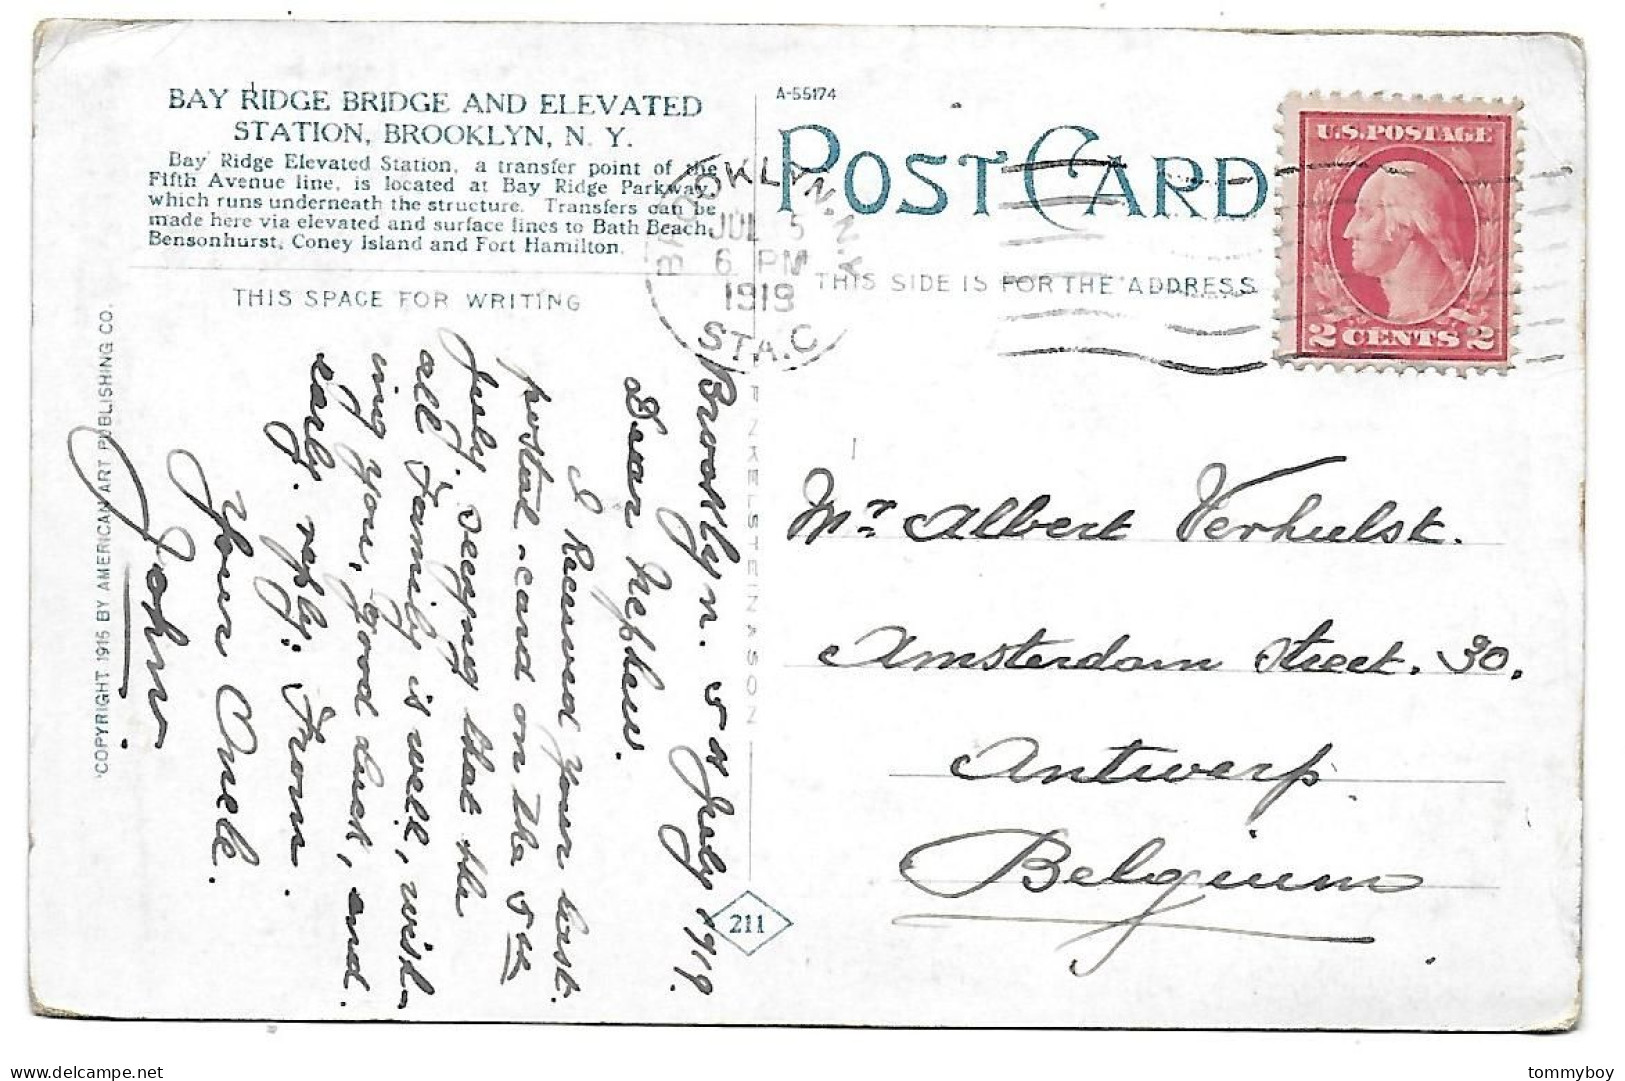 BAY RIDGE BRIDGE AND ELEVATED
STATION, BROOKLYN, N. Y.
Bay Ridge Elevated Station, a transfer point of the
Fifth Avenue line, is located at Bay Ridge Parkway,
which runs underneath the structure. Transfers can be
made here via elevated and surface lines to Bath Beach,
Bensonhurst, Coney Island and Fort Hamilton.
THIS SPACE FOR WRITING
COPYRIGHT 1916 BY AMERICAN ART PUBLISHING CO.
Brooklyn. 5th July 1919.
Dear Nephew.
I Received your last.
postal-card on the 5th
July. Seeying that the
all Family is well, wish-
ing you, good luck, and
early. reply. From.
Your Oncle.
John.
FINKELSTEIN & SON
211
A-55174
POST CARD
THIS SIDE IS FOR THE ADDRESS
BROOKLYN. N.Y.
JUL 5
6 PM
1919
STA. C
U.S. POSTAGE
2 CENTS 2
Mr. Albert Verhulst.
Amsterdam Street. 30.
Antwerp.
Belgium
www.delcampe.net
tommyboy